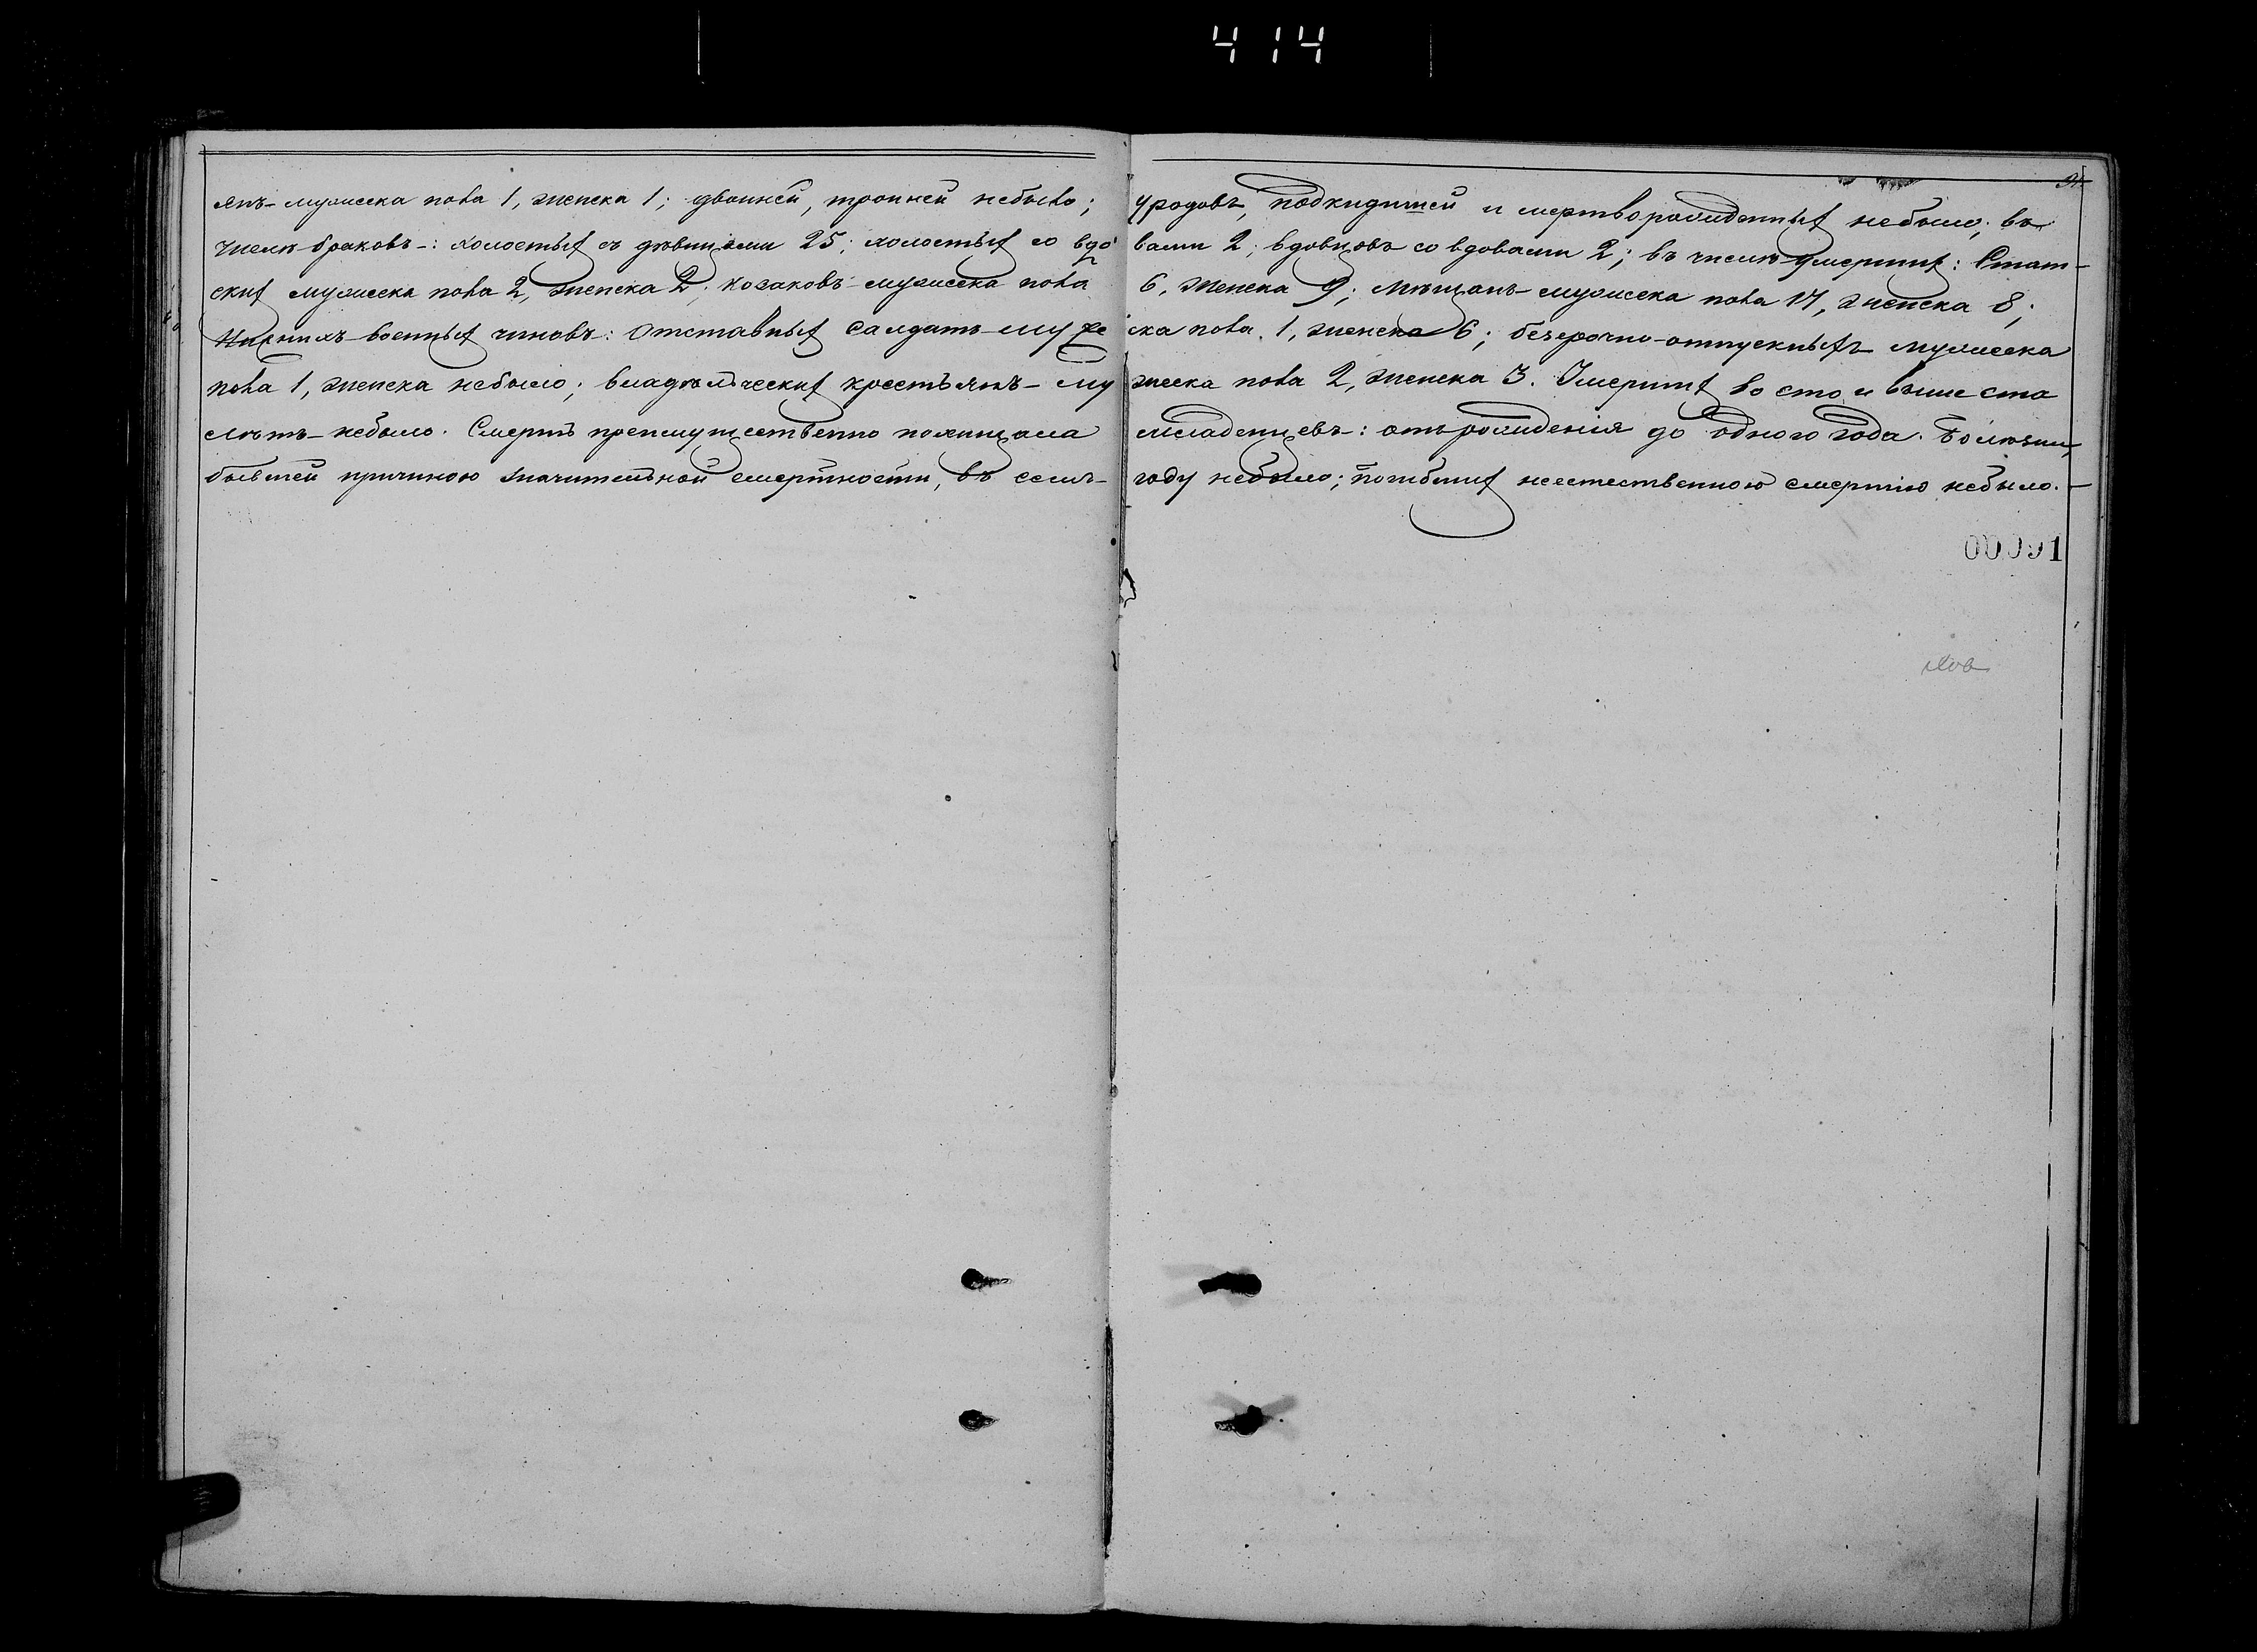 414
91
янъ - мужеска пола 1, женска 1; двойней, тройней небыло; уродовъ, подкидышей и мертворожденныхъ небыло; въ
числѣ браковъ -: холостыхъ съ дѣвицами 25; холостыхъ со вдовами 2; вдовцовъ со вдовами 2; въ числѣ умершихъ: Стат-
скихъ мужеска пола 2, женска 2; козаковъ - мужеска пола 6, женска 9; мѣщанъ - мужеска пола 17, женска 8;
Нижнихъ - военныхъ чиновъ: Отставныхъ Салдатъ - мужеска пола 1, женска 6; безсрочно-отпускныхъ мужеска
пола 1, женска небыло; владѣльческихъ крестьянъ - мужеска пола 2, женска 3. Умершихъ во сто и выше ста
лѣтъ - небыло. Смерть преимущественно похищала младенцевъ -: отъ рожденія до одного года. Болѣзни,
бывшей причиною значительной смертности, въ семъ - году небыло; погибшихъ неестественною смертію небыло. -
00091